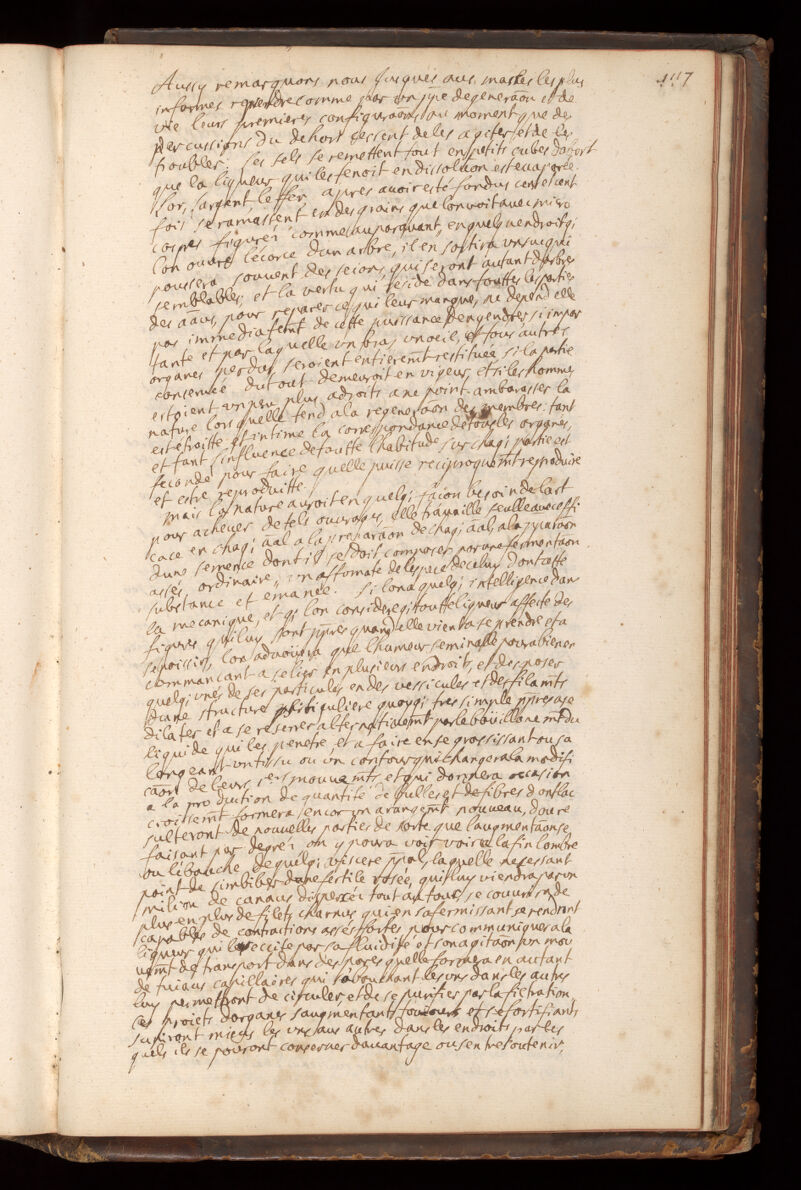 117
Aussy remarquons nous jusques aux masses les plus
informes reprendre comme par un de generaōn et de
vie leurs premieres configuraōns au moment que des
percussions du dehors cessent de les agiter et de les
troubler. Les sels se remettent tout en petits cubes d'abort
que la liqueur qui les tenoit en dissoluōn est evaporée.
L'or, l'argent, le ffer, apres avoir esté fondus cent et cent
fois se ramassent en des grains que l'on voit avec micro
copes figuréz comme auparavant, en quelqu endroit q;
l'on ouvre l'écorce d'un arbre, il en sortira un suc qui
poussera souvent des scions, qui seront autant d'arbres
semblables, et la vertu qui reside dans touttes les parties
des aāux, pour reparer ce qui leur manque, ne depend elle
pas immediatemt de cette puissance d'engendrer si impor
tante et par laquelle un bras, un oeil, et tous autres
organes perdus seroient entieremt restituéz, si la partie
conservée du tout demeuroit en vigeur, et si les hommes
estoient un peu plus adroits a ne point ambarasser la
nature lors quelle tend a la regeneraōn des membres. tant
est etroitte et intime la correspondance de tous les organes,
et tant l'influence de toutte l'habitude sur chaq; partie est
feconde pour faire quelle puisse reciproquemt reproduire
et estre reproduitte.
Mais la nature auroit en quelq; façon besoin de l'art
pour achever de tels ouvrages, elle travaille seulle avec effi
cace en chaq; aāl a la preparaōn de chaq; aāl, a la
d'une semence dont il se doit composer par une fermentaōn
asséz ordinaire, un assomate de l'espece de celuy dont cette
substance est emanée. Si l'on a quelq; intelligence dans
la mecanique, et q; l'on considere q; toutte liqueur affecte des
figures qui luy sont pprés quand elle vient a se prendre et a
s'epoissir, l'on advouera que l'humeur seminalle pourra bien en
commancant a se lier en plusieurs endroits, et disposer
quelq; unes de ses particules en des vessicules et des filamts
d'une structure particuliere quoyq; tres simple ppres a se
dilater et a se reserrer alternativemt par le boüillonnemt du
liquide qui les penetre, et a faire en se grossissant ou sa
longeant un tissu ou un contour qui changera la modifi
caōn de leurs pers mouvemts, et qui donnera occasion
a la production de quantité de bulles et de fibres dont lac
croissemt formera encor un arangemt nouveau, d'ou re
sulteront de nouvelles parties de sorte que l'augmentaōn se
faisant par degréz on y poura voir a la fin l'ombre
ou l'ébauche de quelq; viscere ppal, laquelle ne cessant
point de s'imbiber d'une fertile rosée, qui luy viendra par un
milion de canaux disperséz tout au tour, se couvrira de
plus en plus de filets charnus qui en s'afermissant se rendront
capables de contractions asséz fortes pour communiquer a la
liqueur qui les excite par sa fluidité et son agitaōn un mou
vemt de transport dans des pores quelle formera en autant
de tuiaux capillaires qui s'abouchant les uns dans les autres
luy permettront de circuler et de se purifier par la filtration,
ces proiets d'organes s'augmentants toujours et se fortifiants
s'uniront mieux les uns aux autres dans les endroits par les
quels ils se pouront conserver davantage ou s'entresoutenir,